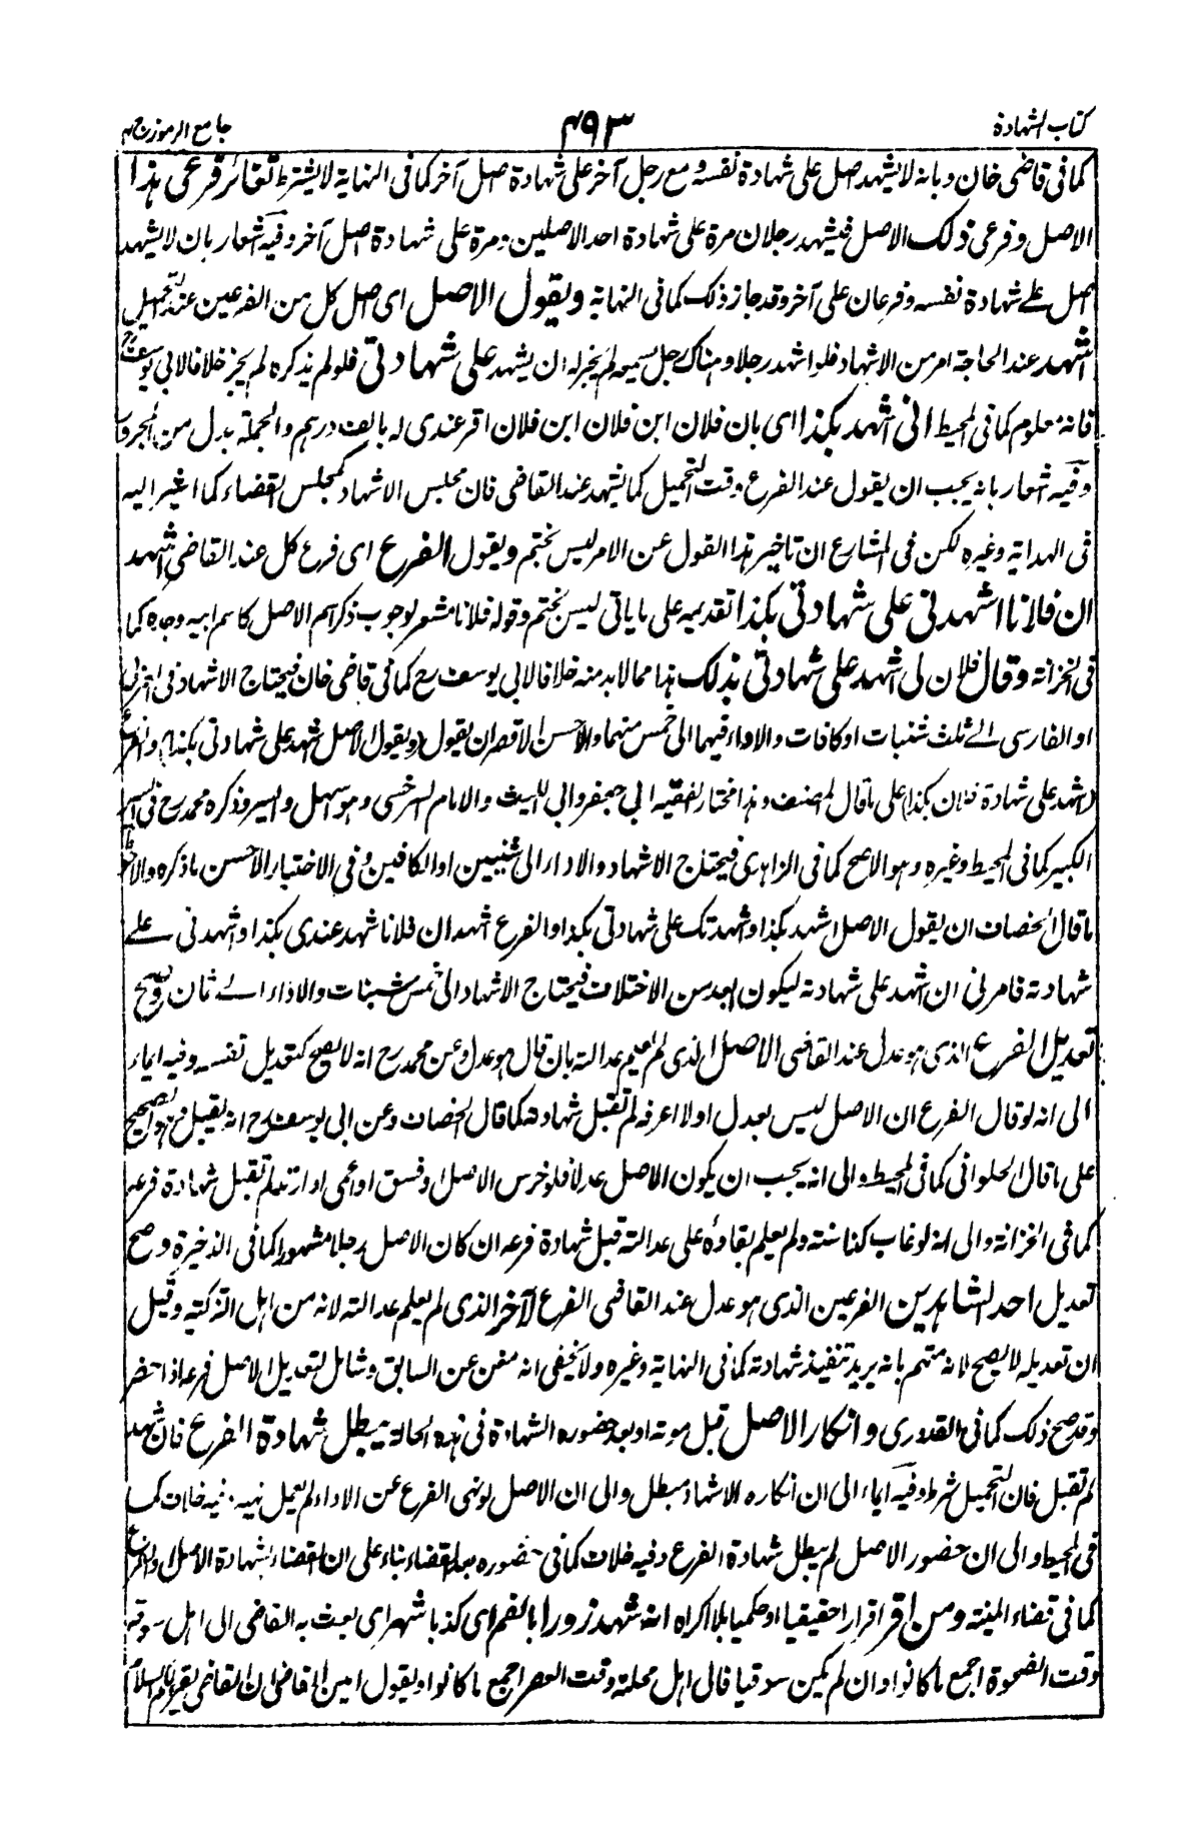 كتاب الشهادة
٤٩٣
جامع الرموز ج ٢
كما فى قاضى خان وبانه لا يشهد اصل على شهادة نفسه ومع رجل آخر على شهادة اصل آخر كما فى النهاية لا يشترط تغائر فرعى هذا
الاصل وفرعى ذلك الاصل فيشهد رجلان مرة على شهادة احد الاصلين ومرة على شهادة اصل آخر وفيه اشعار بان لا يشهد
اصل على شهادة نفسه وفرعان على آخر وقد جاز ذلك كما فى النهاية ويقول الاصل اى اصل كل من الفرعين عند التحميل
اشهد عند الحاجة امر من الاشهاد فلو اشهد رجلا وهناك رجل يسمعه لم يجز له ان يشهد على شهادتى فلو لم يذكره لم يجز خلافا لابى يوسف رح
فانه معلوم كما فى المحيط انى اشهد بكذا اى بان فلان ابن فلان ابن فلان اقر عندى له بالف درهم والجملة بدل من المجرور
وفيه اشعار بانه يجب ان يقول عند الفرع وقت التحميل كما يشهد عند القاضى فان مجلس الاشهاد كمجلس القضاء كما اشير اليه
فى الهداية وغيره لكن فى المشارع ان تاخير هذا القول عن الامر ليس بحتم ويقول الفرع اى فرع كل عند القاضى اشهد
ان فلانا اشهدنى على شهادتى بكذا تقديمه على ما ياتى ليس بحتم وقوله فلانا مشعر لوجوب ذكر اسم الاصل كاسم ابيه وجده كما
فى الخزانة وقال فلان لى اشهد على شهادتى بذلك هذا مما لا بد منه خلافا لابى يوسف رح كما فى قاضى خان فيحتاج الاشهاد فى العربى
او الفارسى الى ثلث شنبات او كافات والاداء فيهما الى خمس منهما والاحسن الاقصر ان يقول (ويقول الاصل اشهد على شهادتى بكذا) والفرع
(اشهد على شهادة فلان بكذا) على ما قال المصنف وهذا مختار الفقيه ابى جعفر وابى الليث والامام السرخسى وهو اسهل وايسر وذكره محمد رح فى السير
الكبير كما فى المحيط وغيره وهو الاصح كما فى الزاهدى فيحتاج الاشهاد والاداء الى شنبين او الكافين وفى الاختيار الاحسن ما ذكره والاحوط
ما قال الخصاف ان يقول الاصل اشهد بكذا واشهدتك على شهادتى بكذا والفرع اشهد ان فلانا شهد عندى بكذا واشهدنى على
شهادته فامرنى ان اشهد على شهادته ليكون ابعد من الاختلاف فيحتاج الاشهاد الى خمس شنبات والاداء الى ثمان ويصح
تعديل الفرع الذى هو عدل عند القاضى الاصل الذى لم يعلم عدالته بان قال هو عدل وعن محمد رح انه لا يصح كتعديل نفسه وفيه ايماء
الى انه لو قال الفرع ان الاصل ليس بعدل او لا اعرفه لم تقبل شهادته كما قال الخصاف وعن ابى يوسف رح انه يقبل وهو الصحيح
على ما قال الحلوانى كما فى المحيط والى انه يجب ان يكون الاصل عدلا فلو خرس الاصل او فسق او اعمى او ارتد لم تقبل شهادة فرعه
كما فى الخزانة والى انه لو غاب كذا سنة ولم يعلم بقاؤه على عدالته قبل شهادة فرعه ان كان الاصل رجلا مشهورا كما فى الذخيرة وصح
تعديل احد الشاهدين الفرعين الذى هو عدل عند القاضى الفرع الآخر الذى لم يعلم عدالته لانه من اهل التزكية وقيل
ان تعديله لا يصح لانه متهم بانه يريد تنفيذ شهادته كما فى النهاية وغيره ولا يخفى انه مغن عن السابق وشامل لتعديل الاصل فرعه اذا حضر
وقد صح ذلك كما فى القدورى وانكار الاصل قبل موته او بعد حضوره الشهادة فى هذه الحالة يبطل شهادة الفرع فان شهد
لم تقبل فان التحميل شرط وفيه ايماء الى ان انكاره الاشهاد مبطل والى ان الاصل لو نهى الفرع عن الاداء لم يعمل نهيه وفيه خلاف كما
فى المحيط والى ان حضور الاصل لم يبطل شهادة الفرع وفيه خلاف كما فى حضوره بعد القضاء بناء على ان القضاء بشهادة الاصل والفرع
كما فى قضاء المنية ومن اقر اقرارا حقيقيا او حكميا بلا اكراه انه شهد زورا بالضم اى كذبا شهر اى بعث به القاضى الى اهل سوقه
وقت الضحوة اجمع ما كانوا وان لم يكن سوقيا فالى اهل محلته وقت العصر اجمع ما كانوا ويقول امين القاضى ان القاضى يقرئكم السلام